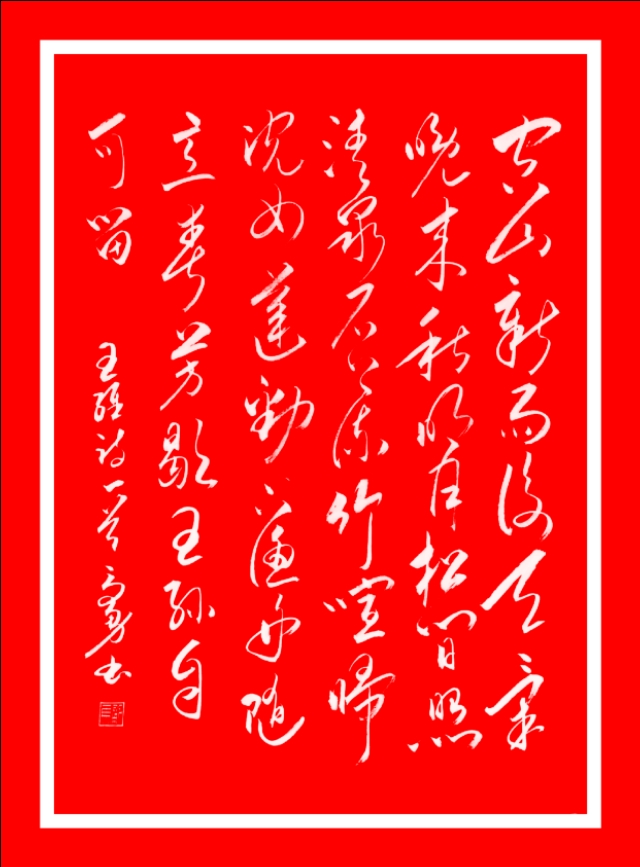 空山新雨後天氣
晚来秋明月松间照
清泉石上流竹喧歸
浣女蓮動下漁舟随
意春芳歇王孫自
可留 王維诗一首 勇书